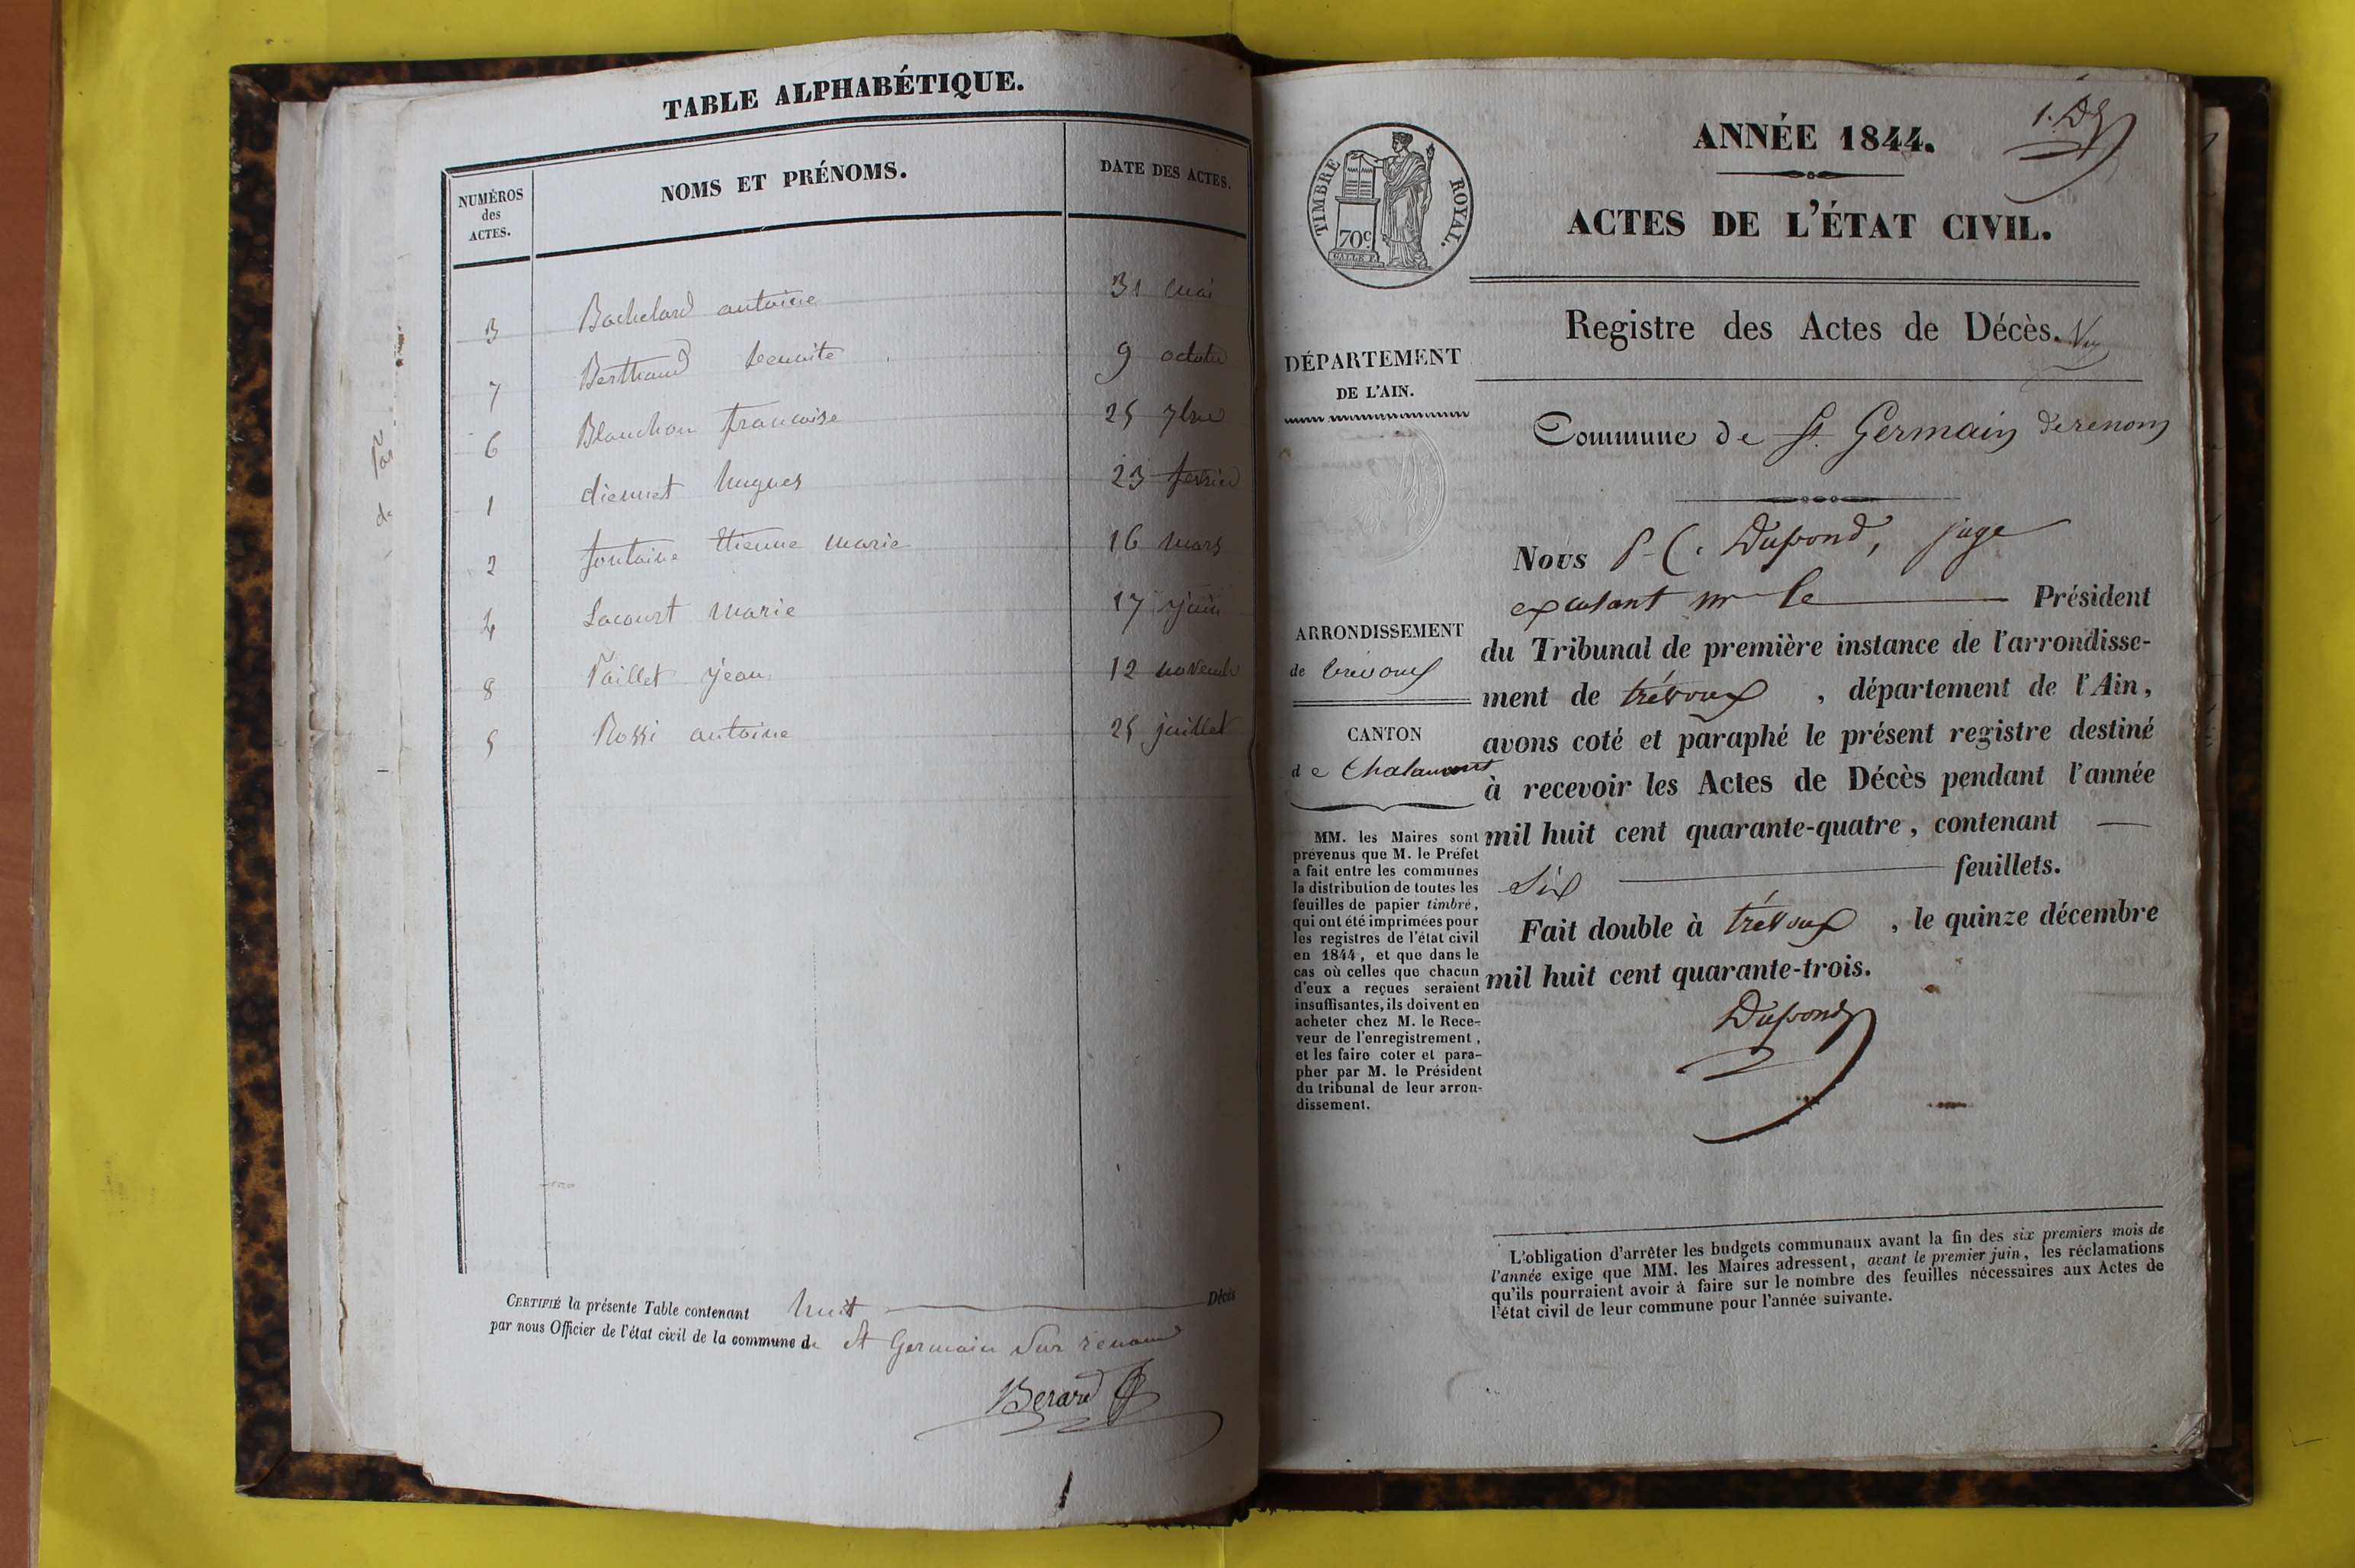 TABLE ALPHABÉTIQUE.
NUMÉROS des ACTES.
NOMS ET PRÉNOMS.
DATE DES ACTES.
3 Bachelard antoine 31 mai
7 Berthaud benoite 9 octobre
6 Blanchon francoise 25 7bre
1 diennet hugues 23 fevrier
2 fontaine Etienne marie 16 mars
4 Lacourt marie 17 juin
8 Paillet jean 12 novembre
5 Rossi antoine 25 juillet
CERTIFIÉ la présente Table contenant huit Décès
par nous Officier de l'état civil de la commune de St Germain Sur renom
Berard
ANNÉE 1844.
TIMBRE ROYAL.
70c.
ACTES DE L'ÉTAT CIVIL.
Registre des Actes de Décès.
DÉPARTEMENT
DE L'AIN.
Commune de St. Germain de renom
ARRONDISSEMENT
de trévoux
CANTON
de Chalamont
MM. les Maires sont
prévenus que M. le Préfet
a fait entre les communes
la distribution de toutes les
feuilles de papier timbré,
qui ont été imprimées pour
les registres de l'état civil
en 1844, et que dans le
cas où celles que chacun
d'eux a reçues seraient
insuffisantes, ils doivent en
acheter chez M. le Rece-
veur de l'enregistrement,
et les faire coter et para-
pher par M. le Président
du tribunal de leur arron-
dissement.
Nous P-C. Dupond, juge
excusant mr le Président
du Tribunal de première instance de l'arrondisse-
ment de trévoux, département de l'Ain,
avons coté et paraphé le présent registre destiné
à recevoir les Actes de Décès pendant l'année
mil huit cent quarante-quatre, contenant —
six feuillets.
Fait double à trévoux, le quinze décembre
mil huit cent quarante-trois.
Dupond
L'obligation d'arrêter les budgets communaux avant la fin des six premiers mois de
l'année exige que MM. les Maires adressent, avant le premier juin, les réclamations
qu'ils pourraient avoir à faire sur le nombre des feuilles nécessaires aux Actes de
l'état civil de leur commune pour l'année suivante.